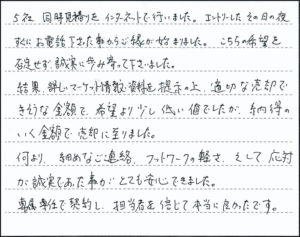 5社 同時見積りをインターネットで行いました。エントリーしたその日の夜
すぐにお電話下さった事からご縁が始まりました。こちらの希望を
否定せず、誠実に歩み寄って下さいました。
結果、詳しいマーケット情報、資料を提示の上、適切な売却で
きそうな金額で、希望より少し低い値でしたが、納得の
いく金額で売却に至りました。
何より、細めなご連絡、フットワークの軽さ、そして応対
が誠実であった事がとても安心できました。
専属専任で契約し、担当者を信じて本当に良かったです。